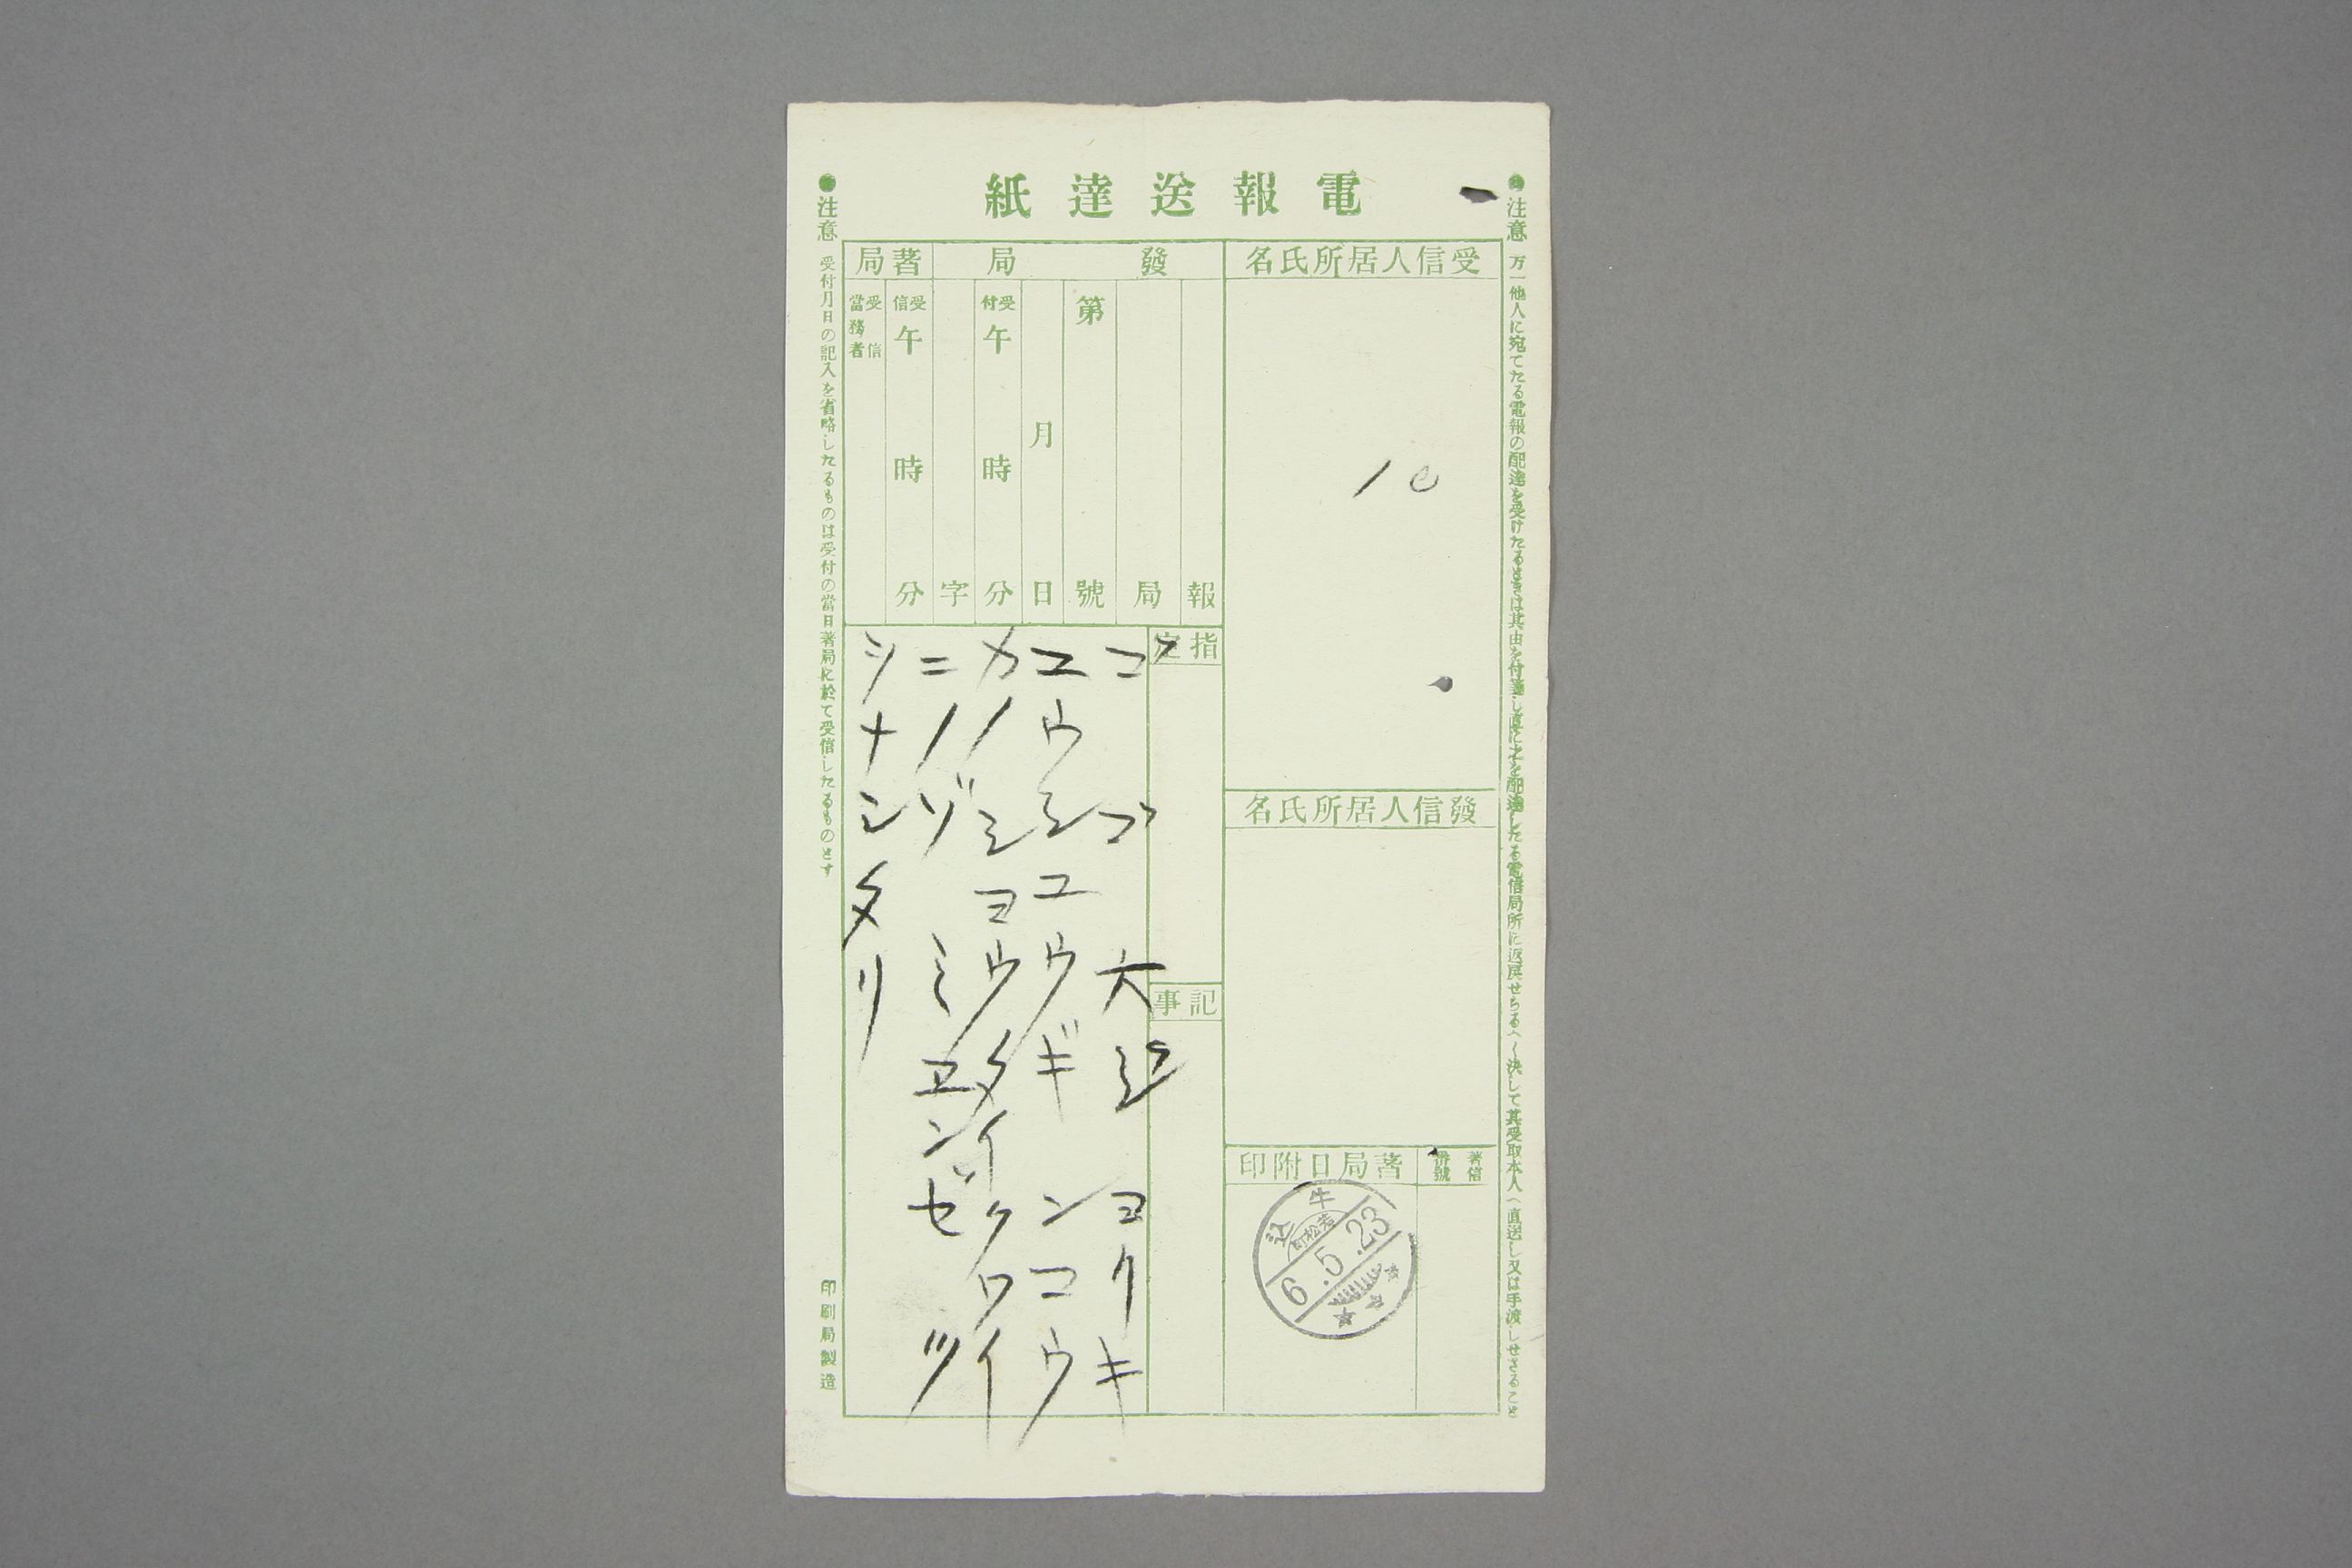 電報送達紙
●注意 万一他人に宛てたる電報の配達を受けたるときは其由を付箋し直に之を配達したる電信局所に返戻せらるへし決して其受取本人へ直送し又は手渡しせさること
受信人居所氏名
發信人居所氏名
著信番號
著局日附印
牛込
若松町
6.5.23
發局
報
局
第 號
月 日
受付 午 時 分
字
著局
受信 午 時 分
受信當務者
指定
記事
ゴゴ 六ジ ヨクキ
ユウシユウギンコウ
カノシヨウタイクワイ
ニノゾミ ヱンゼツ
シナンタリ
●注意 受付月日の記入を省略したるものは受付の當日著局に於て受信したるものとす
印刷局製造